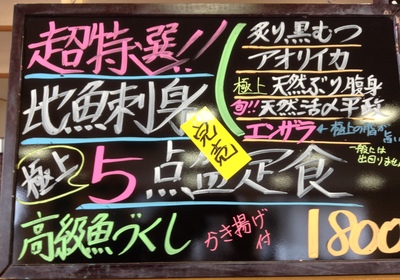 超特選!!
地魚刺身
炙り黒むつ
アオリイカ
極上 天然ぶり腹身
旬!! 天然活〆平政
エンザラ ←極上の脂が旨い
一般には
出回りません
完売
極上 5点盛定食
高級魚づくし
かき揚げ
付
1800